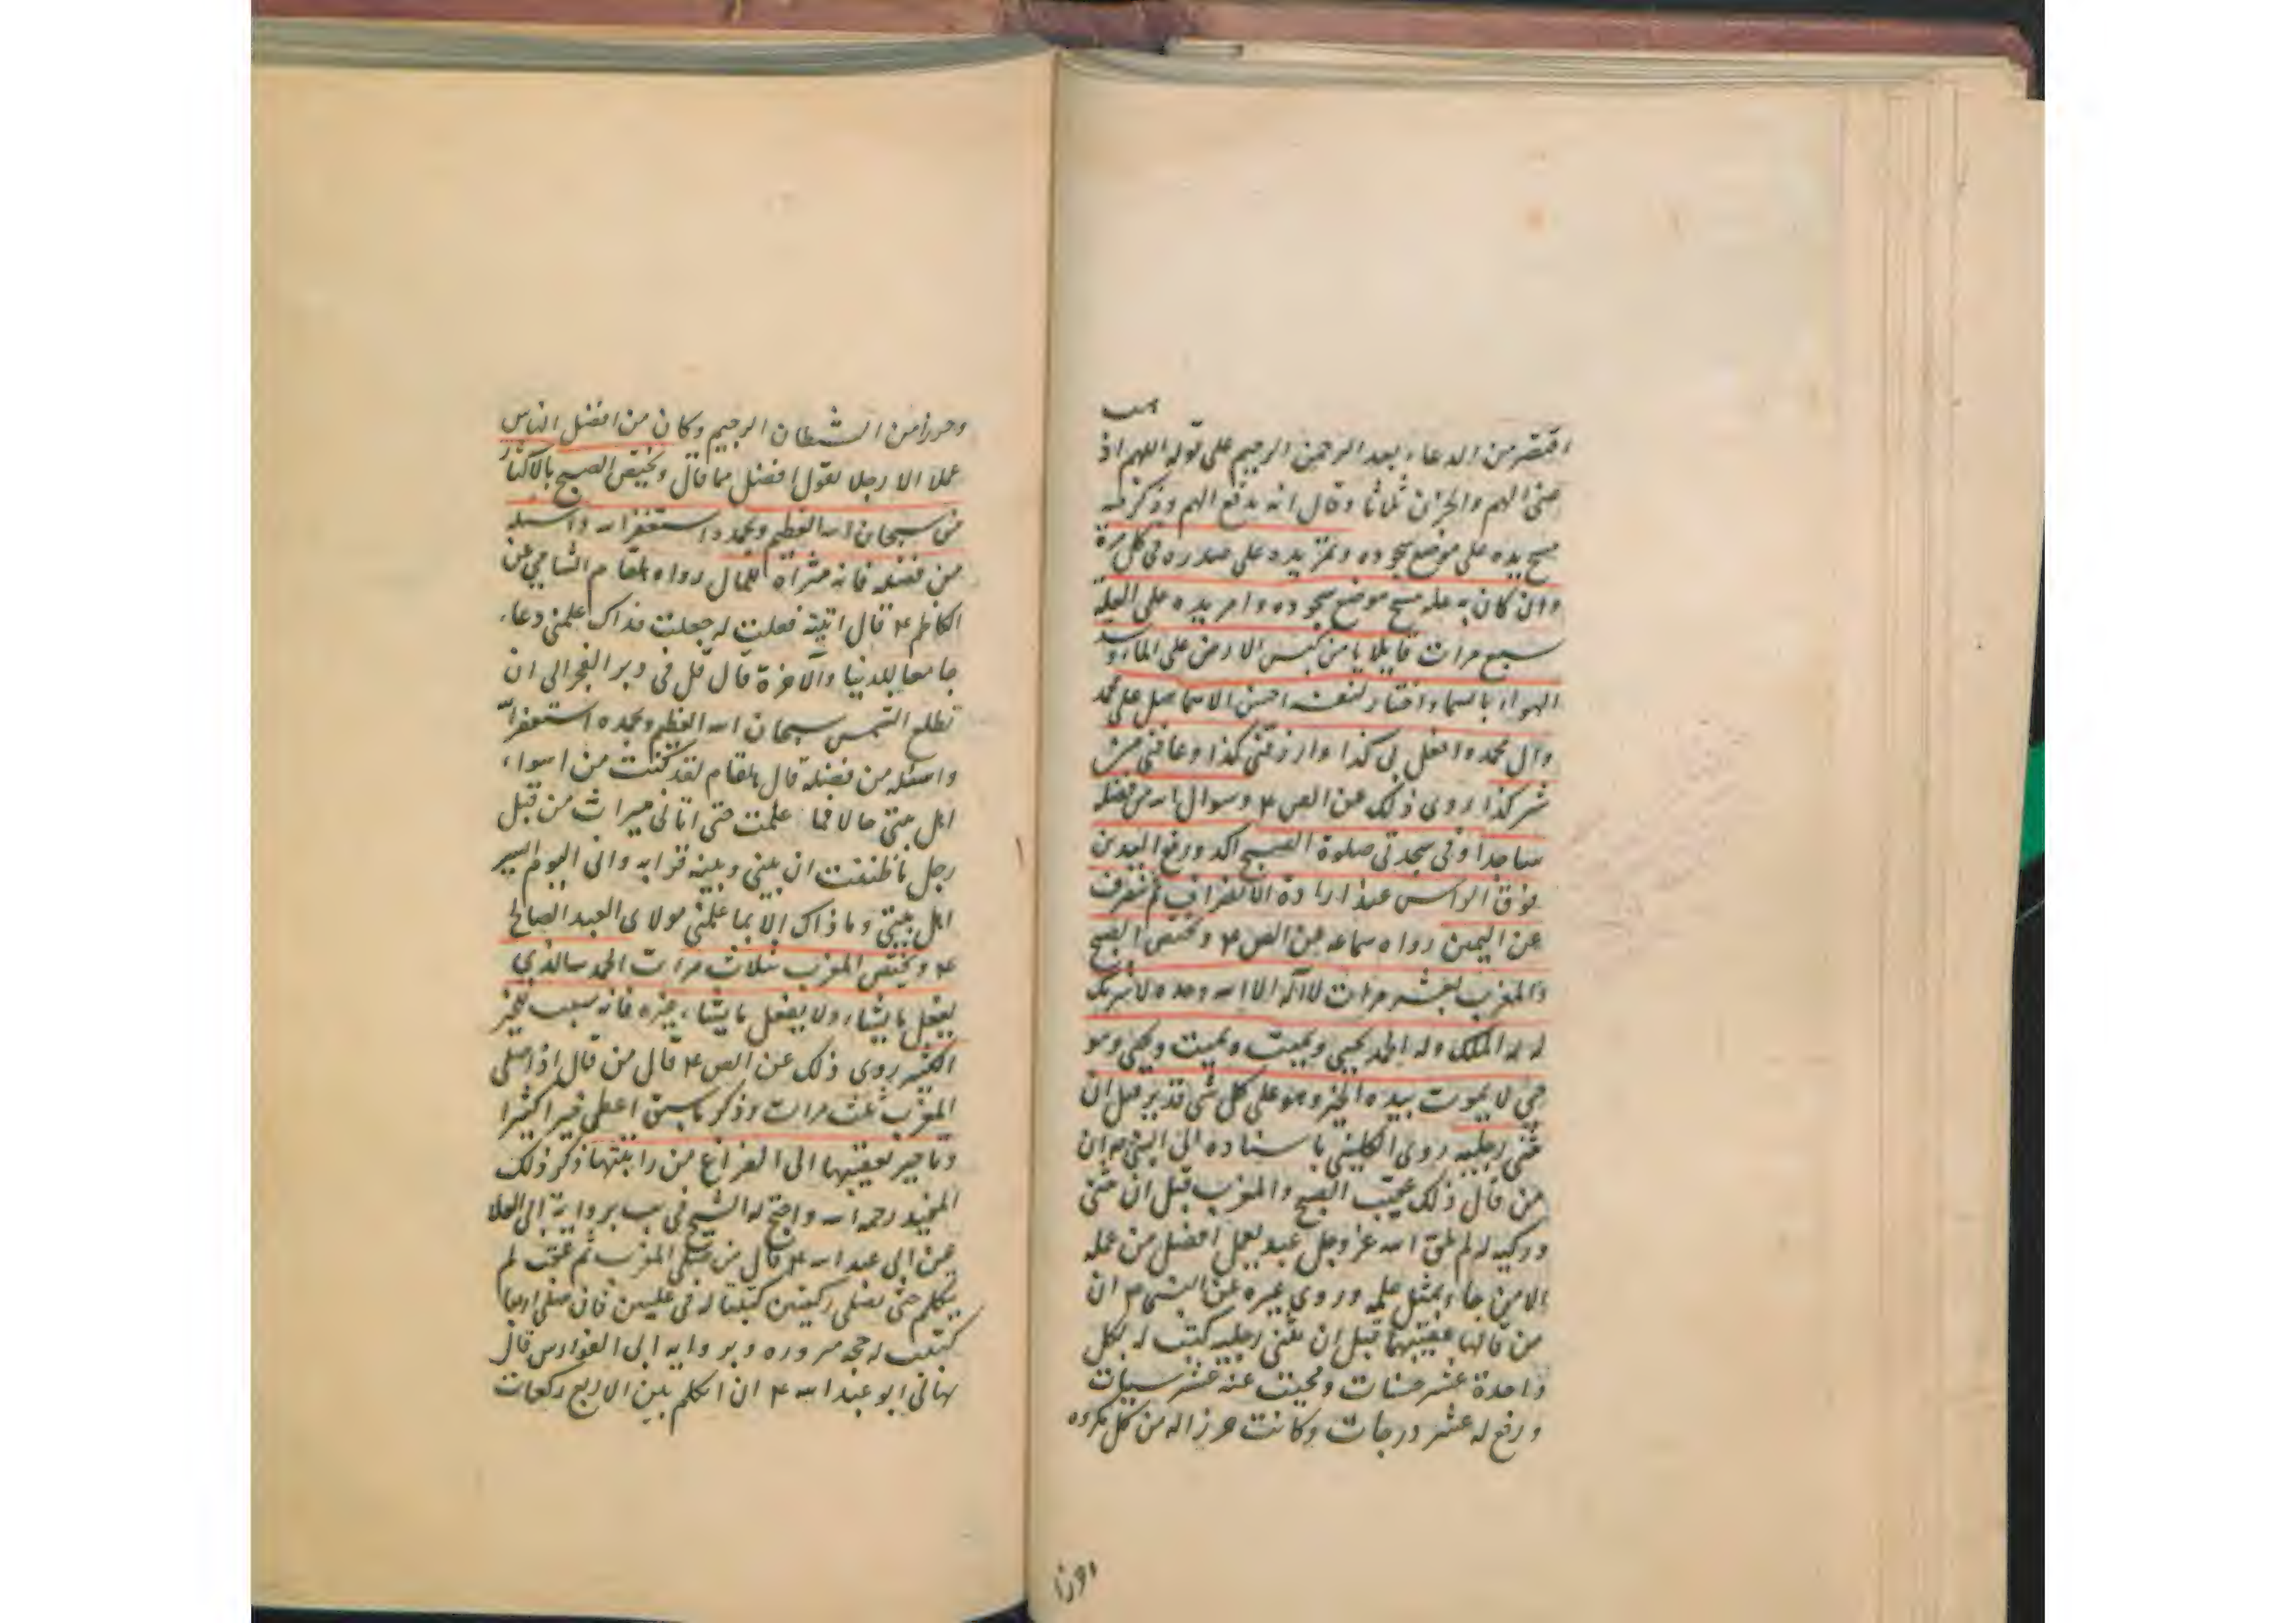 اقتصر من الدعاء بعد الرحمن الرحيم على قوله اللهم اذهب
عنى الهم والحزن ثلاثا وقال انه يدفع الهم وذكر فيه
مسح يده على موضع سجوده ويمر يده على صدره فى كل مرة
وان كان به علة مسح موضع سجوده وامر يده على العلة
سبع مرات قايلا يا من كبس الارض على الماء وسد
الهواء بالسماء واختار لنفسه احسن الاسما صل على محمد
وال محمد وافعل بى كذا وارزقنى كذا وعافنى من
شر كذا روى ذلك عن الص ع وسوال الله من فضله
ساجدا وفى سجدتى صلوة الصبح اكد ورفع اليدين
فوق الراس عند ارادة الانصراف ثم ينصرف
عن اليمين رواه سماعه عن الص ع ويختص الصبح
والمغرب بعشر مرات لا اله الا الله وحده لا شريك
له له الملك وله الحمد يحيى ويميت ويميت ويحيى وهو
حى لا يموت بيده الخير وهو على كل شى قدير قبل ان
يثنى رجليه روى الكلينى باسناده الى النبى ص ان
من قال ذلك عقيب الصبح والمغرب قبل ان يثنى
ركبتيه لم يلق الله عز وجل عبد بعمل افضل من عمله
الا من جاء بمثل عمله وروى غيره عن النبى ص ان
من قالها عقيبهما قبل ان يثنى رجليه كتب له بكل
واحدة عشر حسنات ومحيت عنه عشر سيئات
ورفع له عشر درجات وكانت حرزا له من كل مكروه
وحرزا من الشيطان الرجيم وكان من افضل الناس
عملا الا رجلا يقول افضل مما قال ويختص الصبح بالاكثار
من سبحان الله العظيم وبحمده استغفر الله واسئله
من فضله فانه مثراة للمال رواه هلقام الشامى عن
الكاظم ع قال اتيته فقلت له جعلت فداك علمنى دعاء
جامعا للدنيا والآخرة قال قل فى دبر الفجر الى ان
تطلع الشمس سبحان الله العظيم وبحمده استغفر الله
واسئله من فضله قال هلقام لقد كنت من اسواء
اهل بيتى حالا فما علمت حتى اتانى ميراث من قبل
رجل ما ظننت ان بينى وبينه قرابه وانى اليوم ايسر
اهل بيتى وما ذاك الا بما علمنى مولاى العبد الصالح
ع ويختص المغرب بثلاث مرات الحمد لله الذى
يفعل ما يشاء ولا يفعل ما يشاء غيره فانه سبب للخير
الكثير روى ذلك عن الص ع قال من قال اذا صلى
المغرب ثلث مرات وذكر ما سبق اعطى خيرا كثيرا
وتاخير تعقيبها الى الفراغ من راتبتها ذكر ذلك
المفيد رحمه الله واحتج له الشيخ فى يب برواية ابى العلا
عن ابى عبد الله ع قال من صلى المغرب ثم عقب لم
يتكلم حتى يصلى ركعتين كتبتا له فى عليين فان صلى اربعا
كتبت له حجه مبروره وبروايه ابى الفوارس قال
نهانى ابو عبد الله ع ان اتكلم بين الاربع ركعات